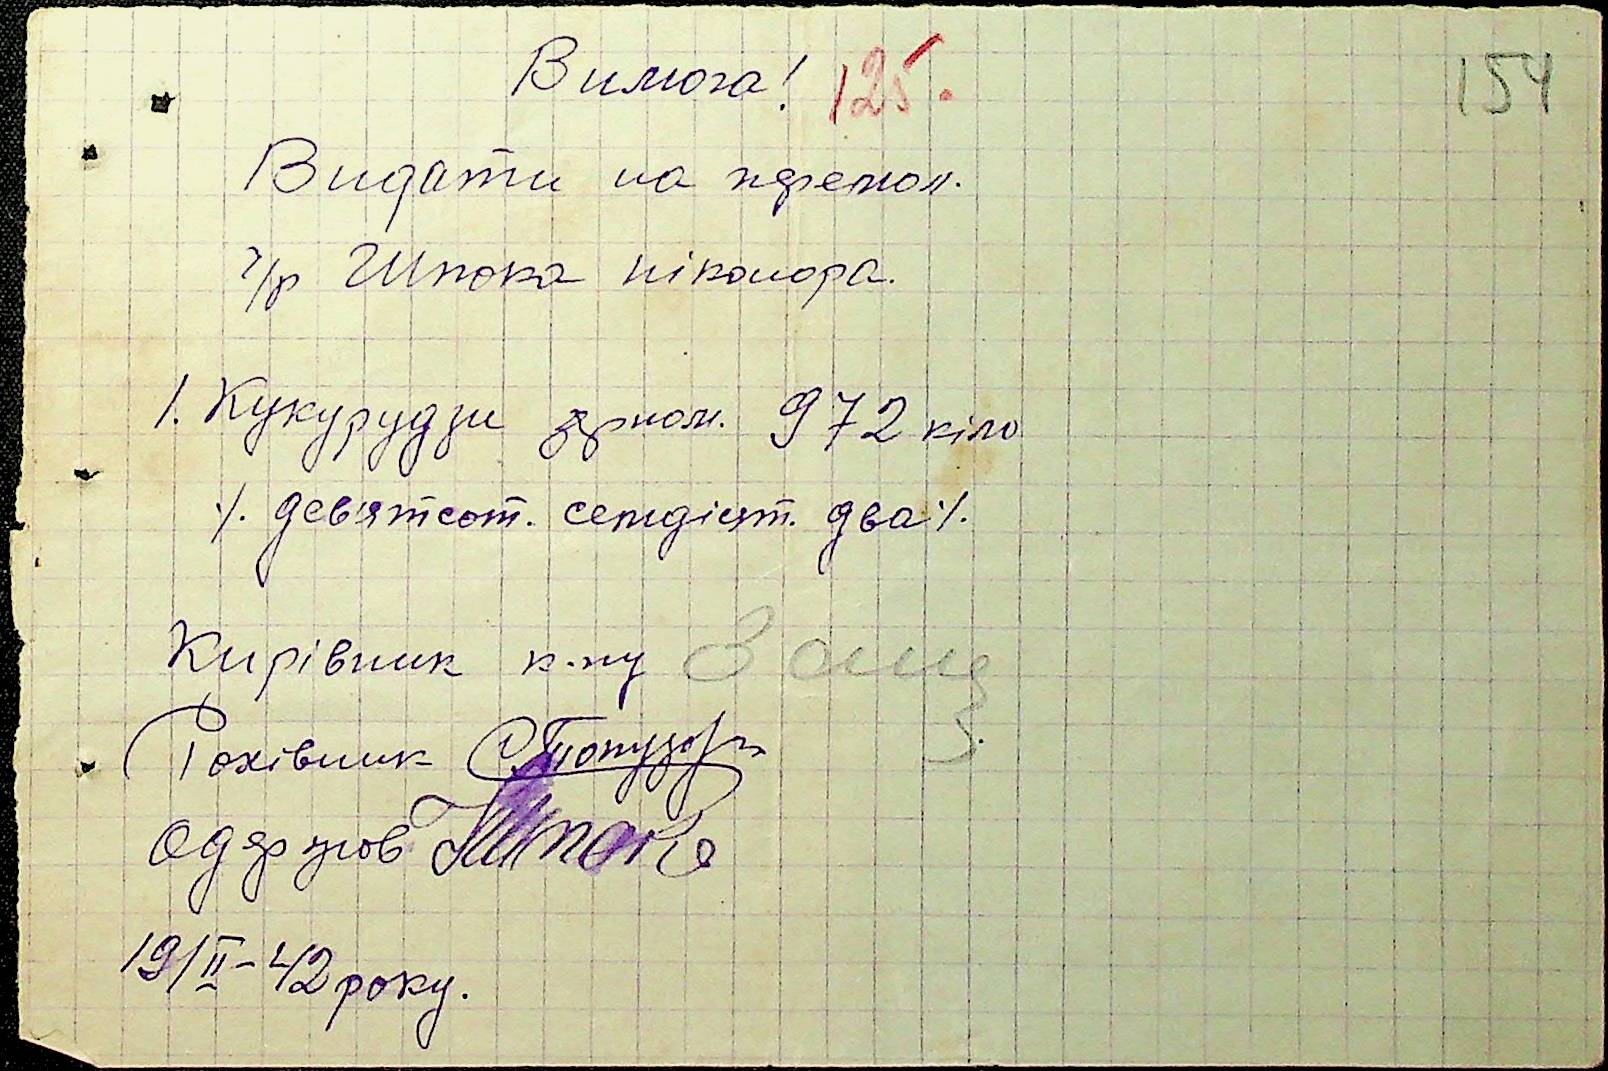 Вимога! 125. 154
Видати на перемол.
г/р Шпока Ніконора.
1. Кукурудзи зерном. 972 кіло
/. девятсот. семдісят. два /.
Кирівник к-пу
Рохівник
Одержов Шпока
19/II-42 року.